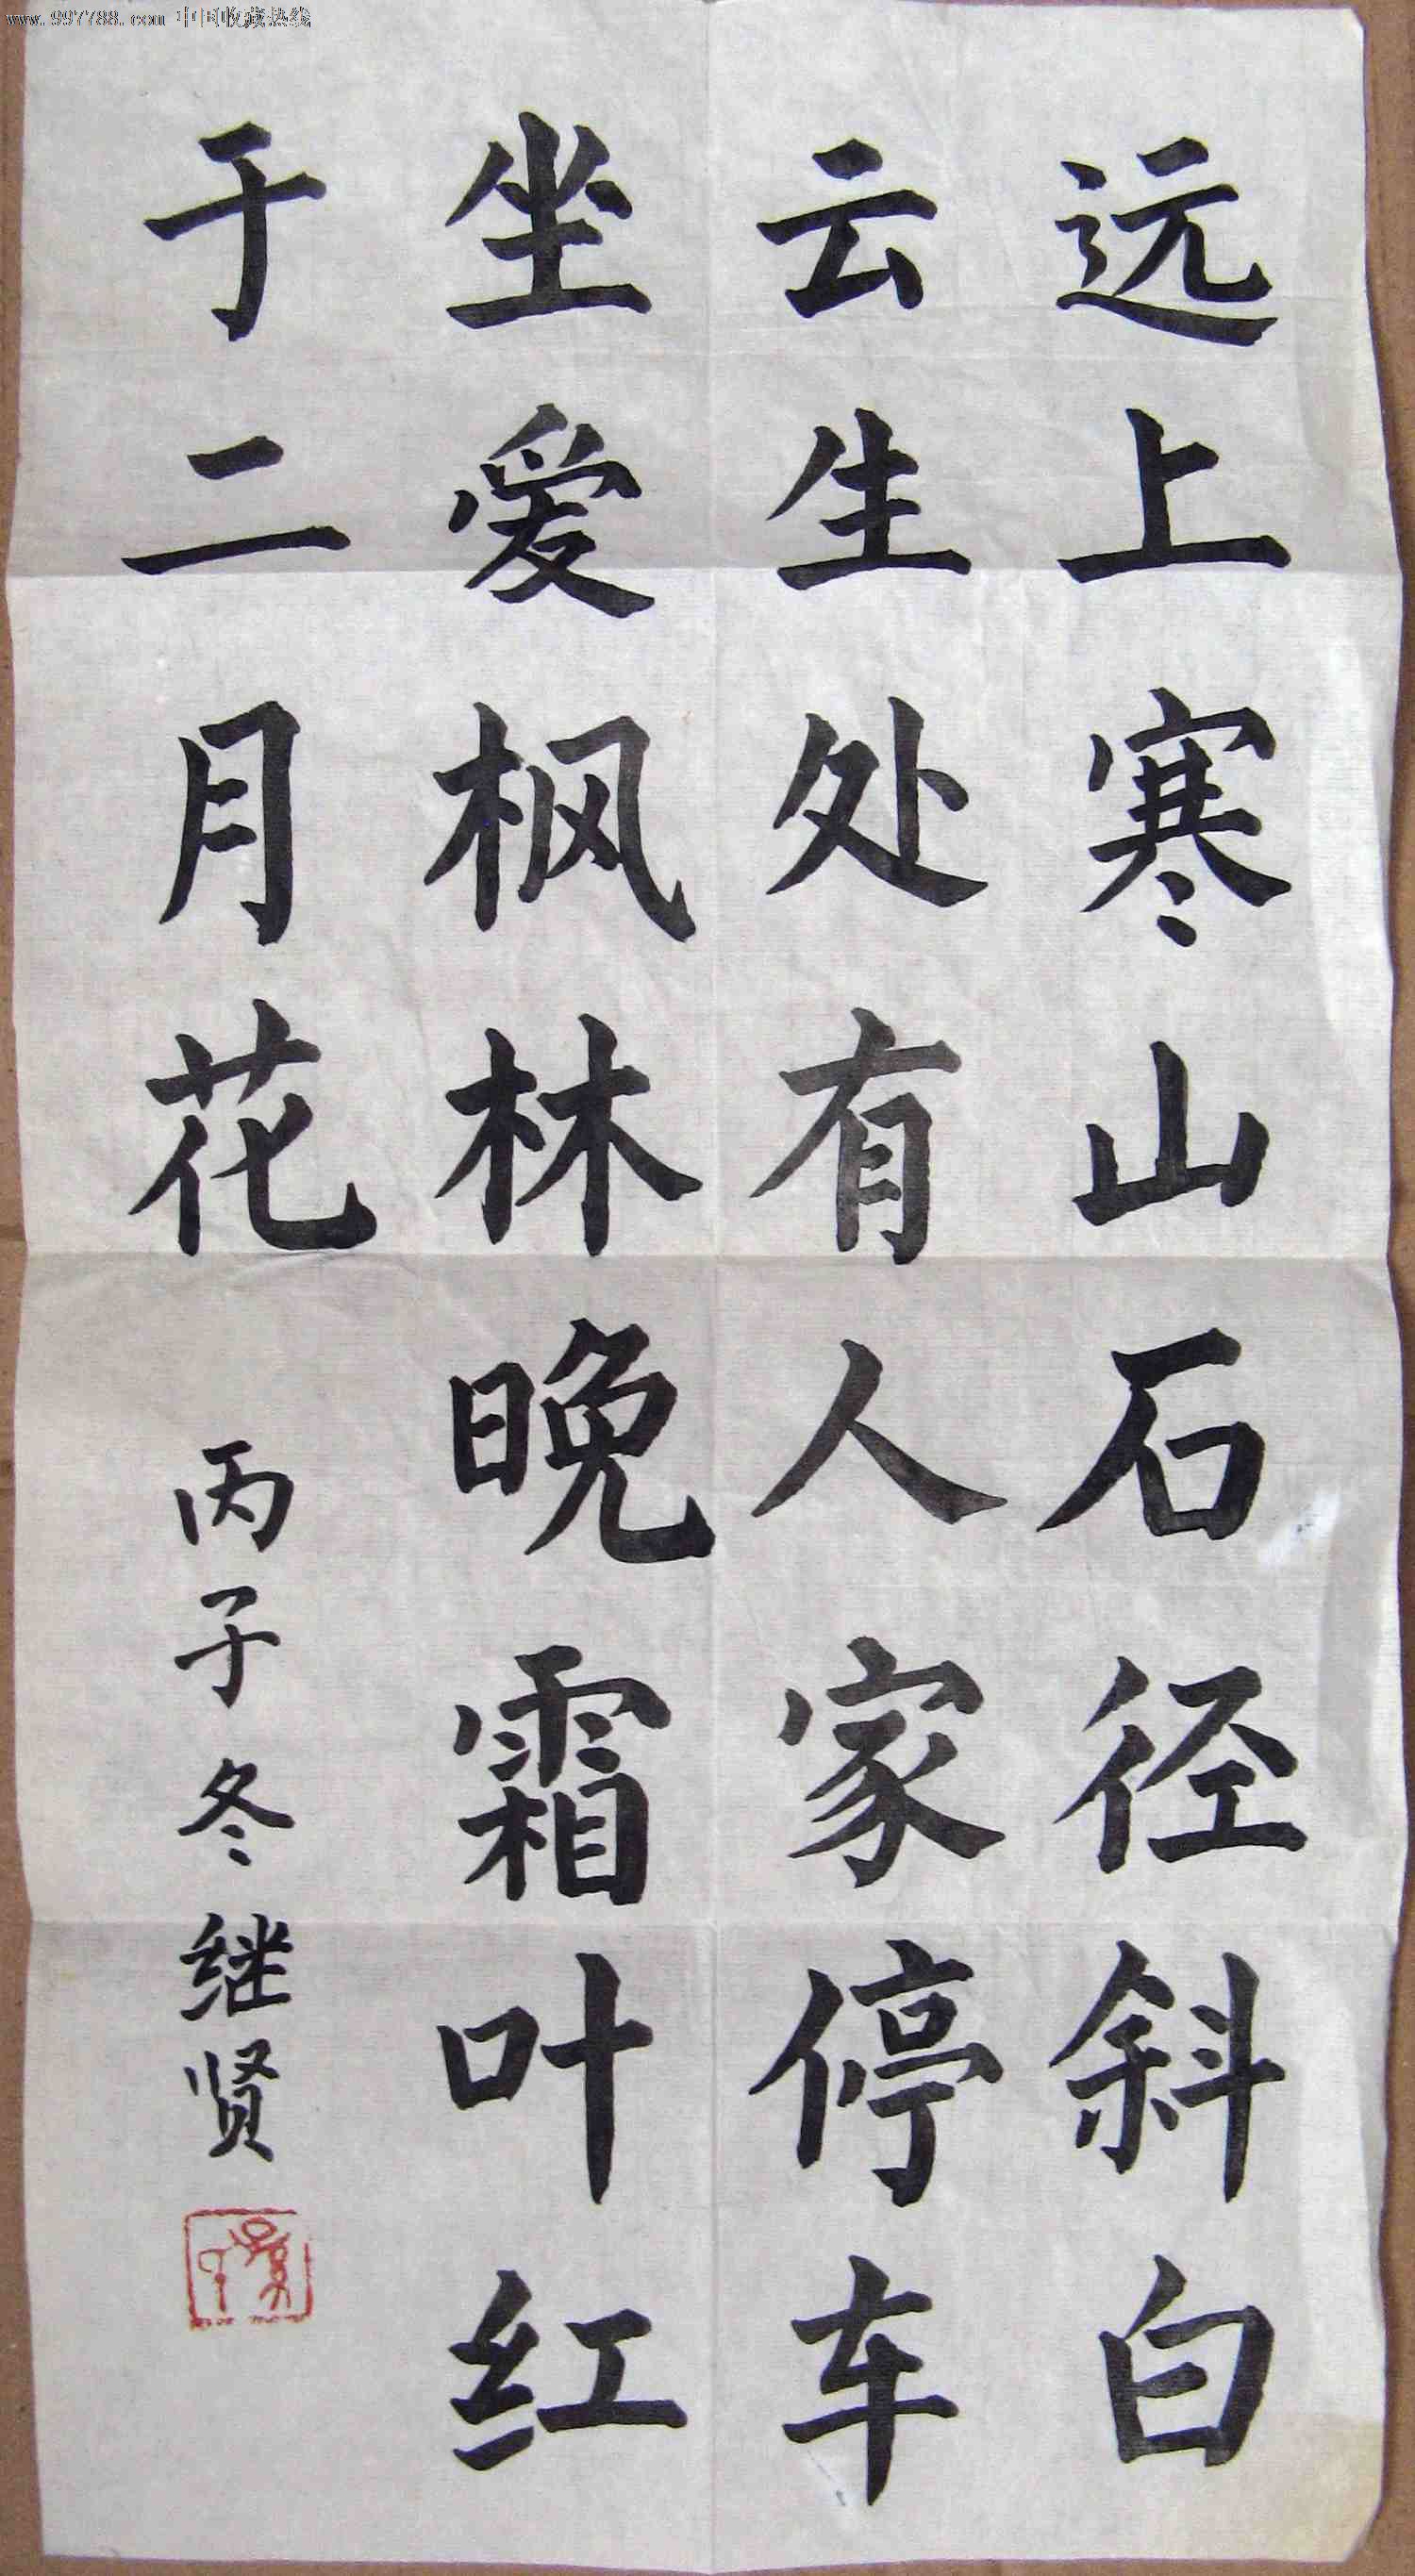 www.997788.com 中国收藏热线
远上寒山石径斜白
云生处有人家停车
坐爱枫林晚霜叶红
于二月花
丙子冬继贤